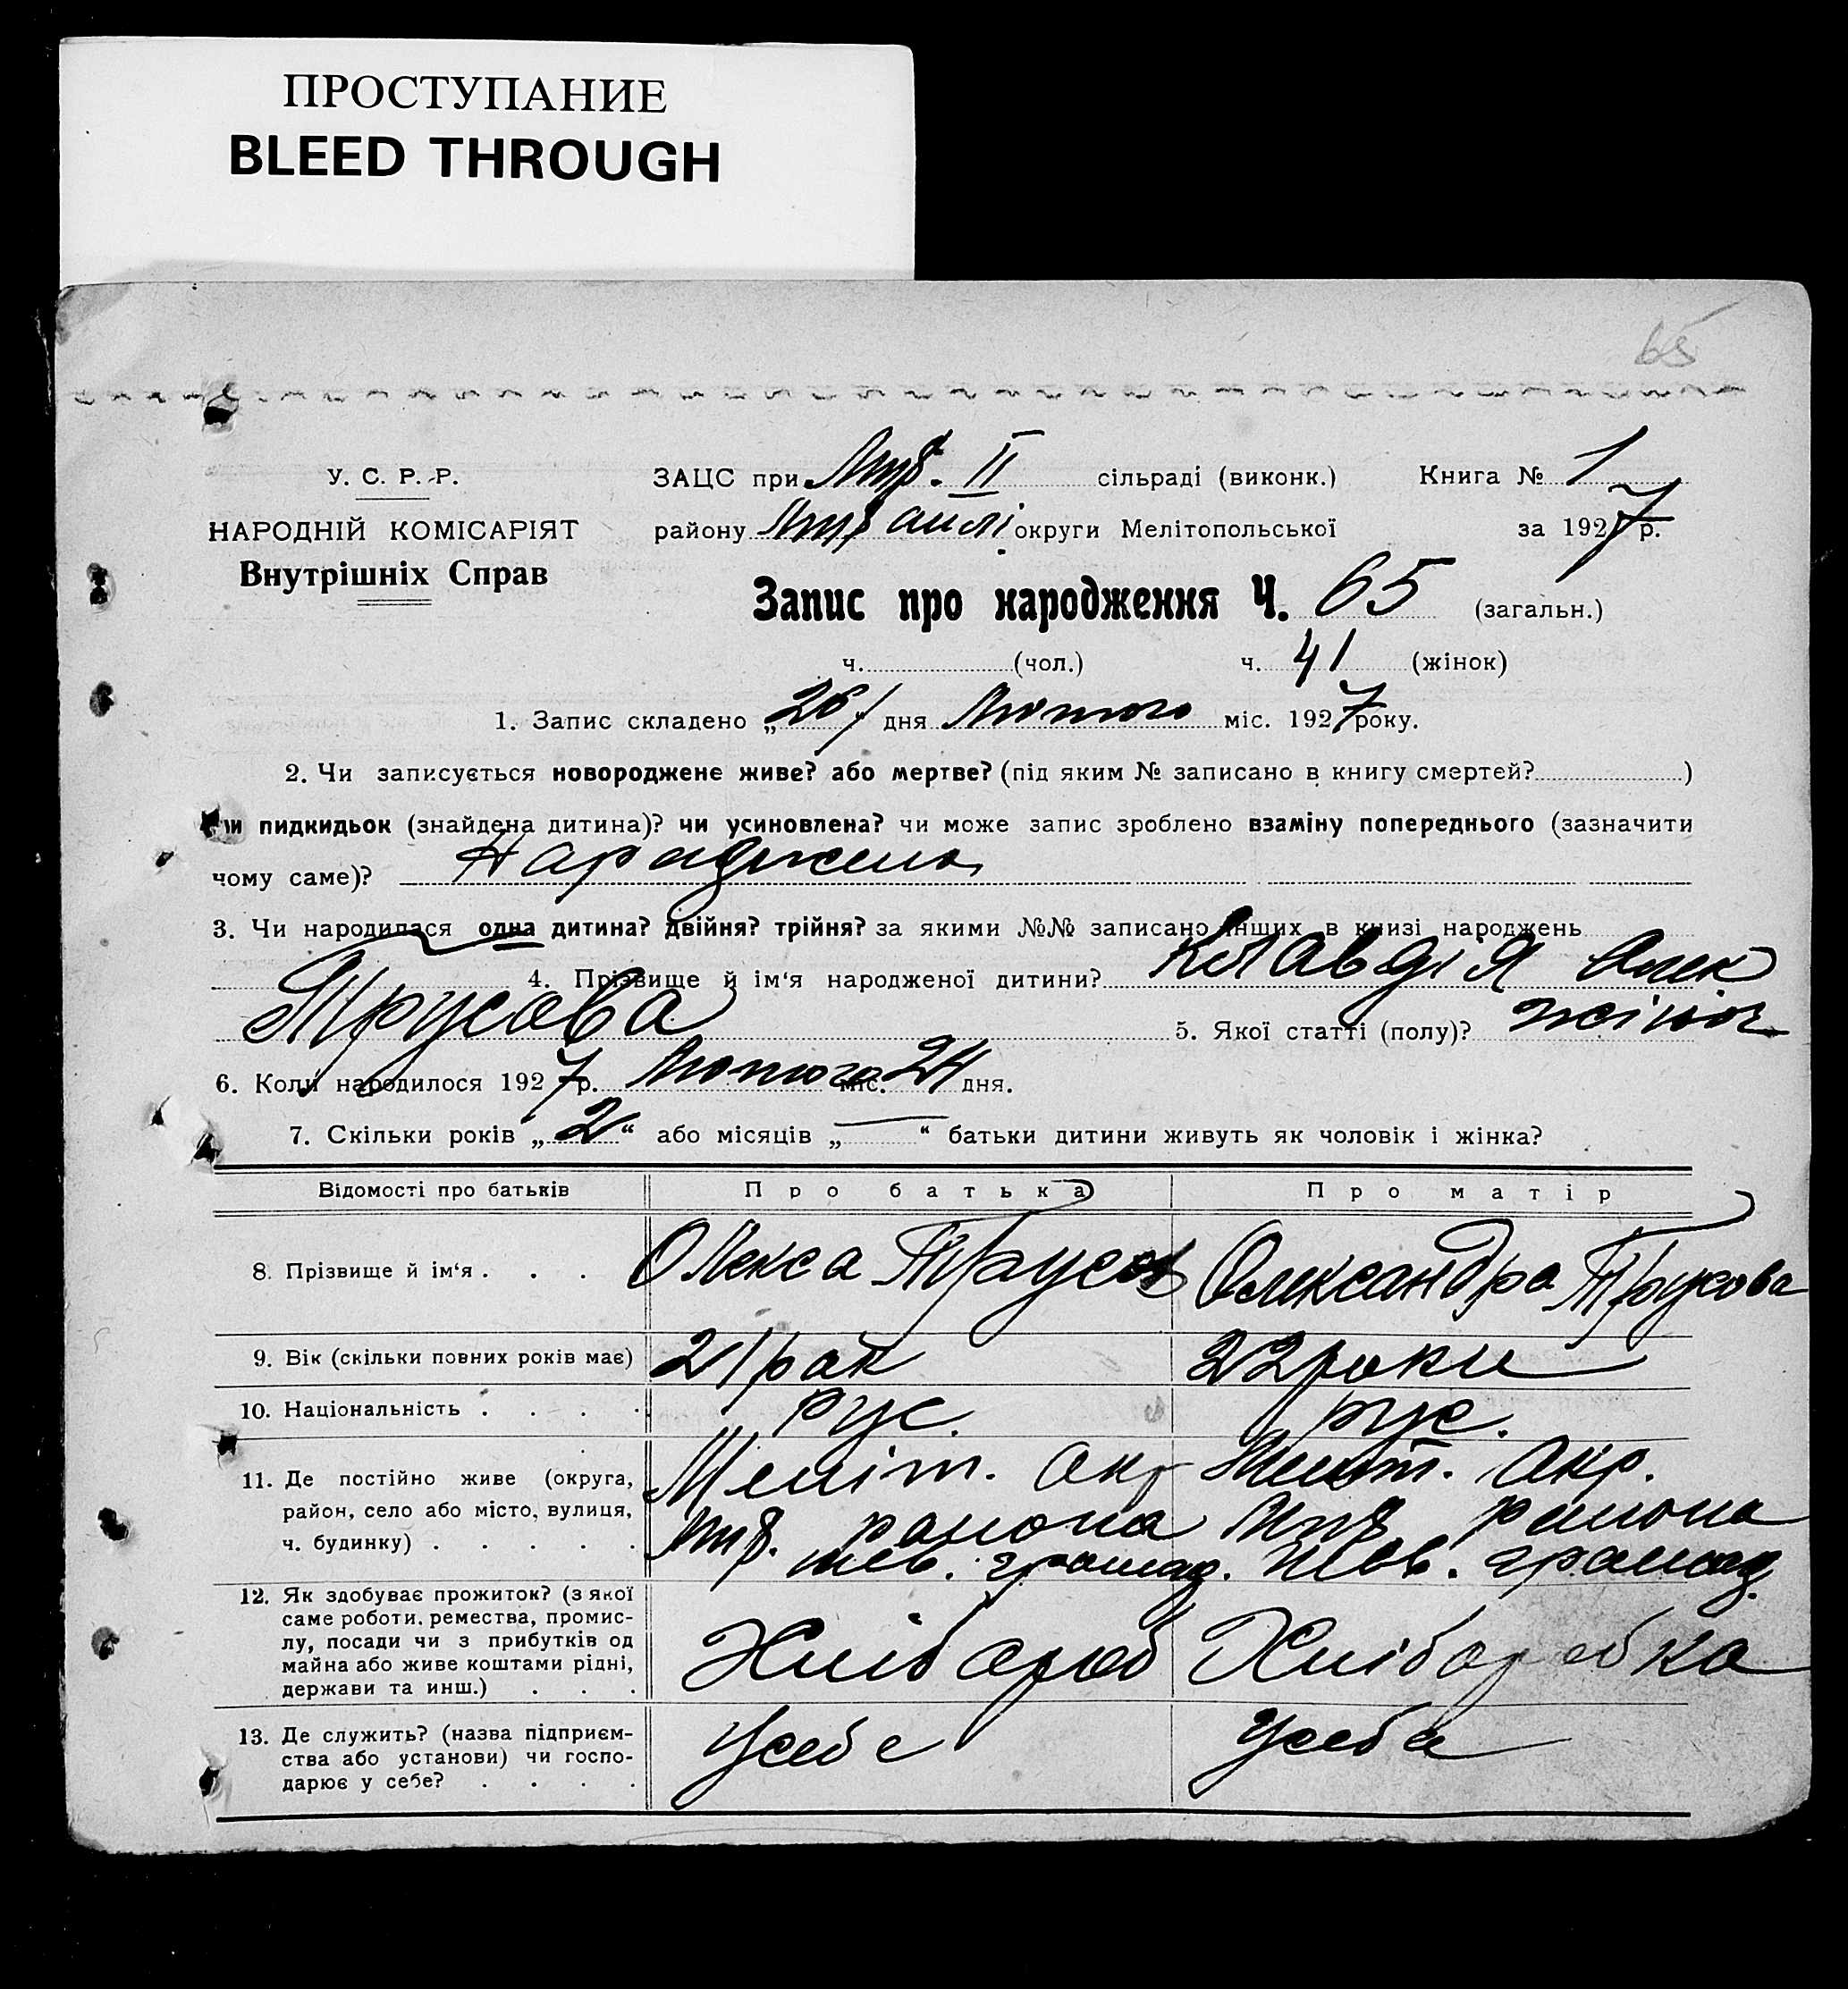 ПРОСТУПАНИЕ
BLEED THROUGH
65
У. С. Р. Р. ЗАЦС при II сільраді (виконк.) Книга № 1
НАРОДНІЙ КОМІСАРІЯТ району округи Мелітопольської за 1927 р.
Внутрішніх Справ
Запис про народження Ч. 65 (загальн.)
ч. (чол.) ч. 41 (жінок)
1. Запис складено „26“ дня Лютого міс. 1927 року.
2. Чи записується новороджене живе? або мертве? (під яким № записано в книгу смертей? )
чи пидкидьок (знайдена дитина)? чи усиновлена? чи може запис зроблено взаміну попереднього (зазначити
чому саме)?
3. Чи народилася одна дитина? двійня? трійня? за якими №№ записано інших в книзі народжень
4. Прізвище й ім‘я народженої дитини? Клавдія Олек
Трусова 5. Якої статті (полу)? жіноч
6. Коли народилося 1927 р. Лютого міс. 24 дня.
7. Скільки років „2“ або місяців „—“ батьки дитини живуть як чоловік і жінка?
Відомості про батьків Про батька Про матір
8. Прізвище й ім‘я . . . Олекса Трусов Олександра Трусова
9. Вік (скільки повних років має) 21 рок 22 роки
10. Національність . . . . рус. рус.
11. Де постійно живе (округа, Меліт. окр Меліт. окр.
район, село або місто, вулиця, района района
ч. будинку) . . . . . громад. громад.
12. Як здобуває прожиток? (з якої
саме роботи, ремества, промис-
лу, посади чи з прибутків од Хлібороб Хліборобка
майна або живе коштами рідні,
держави та инш.) . . .
13. Де служить? (назва підприєм- Усебе Усебе
ства або установи) чи госпо-
дарює у себе? . . . .